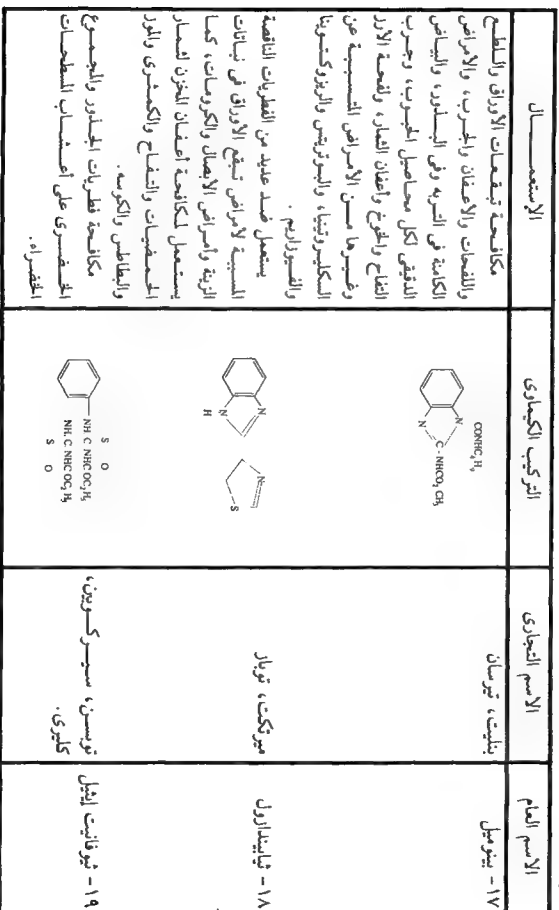 الاسم العام
الاسم التجارى
التركيب الكيماوى
الاستعمـــــال
١٧- بينوميل
بنليت، تيرسان
CONHC₄H₉
N
C - NHCO₂ CH₃
N
مكافحـة تبقـعـات الأوراق والـلطـع
واللفحات والأعـفان والجـرب، والأمراض
الكامنة فى التـربه وفى البـذور، والبياض
الدقيقى لكل محـاصيل الحبـوب، وجـرب
التفاح والخوخ وأعفان الثمار، ولفحـة الأرز
وغـيـرها مـن الأمـراض المسـبـبـة عن
السكليـروتينيا، والبـوتريتس والريزوكـتـونيا
والفـيـوزاريم .
١٨- ثيابيندازول
ميرتكت، توباز
N
N
H
N
S
يستعمل ضـد عديد من الفطريات الناقصة
المسـببـة لأمراض تـبـقع الأوراق فى نباتات
الزينة وأمراض الأبصال والكرومـات، كمـا
يسـتـعـمل لمكافـحـة أعفـان المخزن لثـمـار
الحـمـضـيـات والتـفـاح والكمـثـرى والموز
والبطاطس والكوسه .
١٩- ثيوفانيت إيثيل
توبسـن، سيـركـوبين،
كليرى.
S O
NH C NHC OC₂H₅
NH. C NHC OC₂ H₅
S O
مكافـحـة فطريات الجـذور والمجـمـوع
الخـضـرى على أعـشـاب المسطحـات
الخضراء.